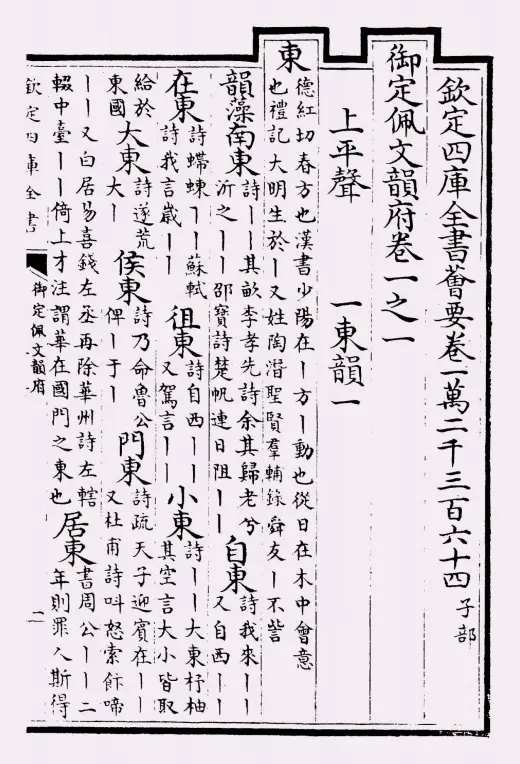 欽定四庫全書薈要卷一萬二千三百六十四 子部
御定佩文韻府卷一之一
上平聲 一東韻一
東 德紅切春方也漢書少陽在丨方丨動也從日在木中會意
也禮記大明生於丨又姓陶潛聖賢羣輔錄舜友丨不訾
韻藻南東 詩丨丨其畝李孝先詩余其歸老兮
沂之丨丨邵寶詩楚帆連日阻丨丨
自東 詩我來丨丨
又自西丨丨
在東 詩蝃蝀丨丨蘇軾
詩我言歲丨丨
徂東 詩自西丨丨
又駕言丨丨
小東 詩丨丨大東杼柚
其空言大小皆取
給於
東國
大東 詩遂荒
大丨
侯東 詩乃命魯公
俾丨于丨
門東 詩疏天子迎賓在丨丨
又杜甫詩叫怒索飰啼
丨丨又白居易喜錢左丞再除華州詩左轄
輟中臺丨丨倚上才注謂華在國門之東也
居東 書周公丨丨二
年則罪人斯得
欽定四庫全書
御定佩文韻府